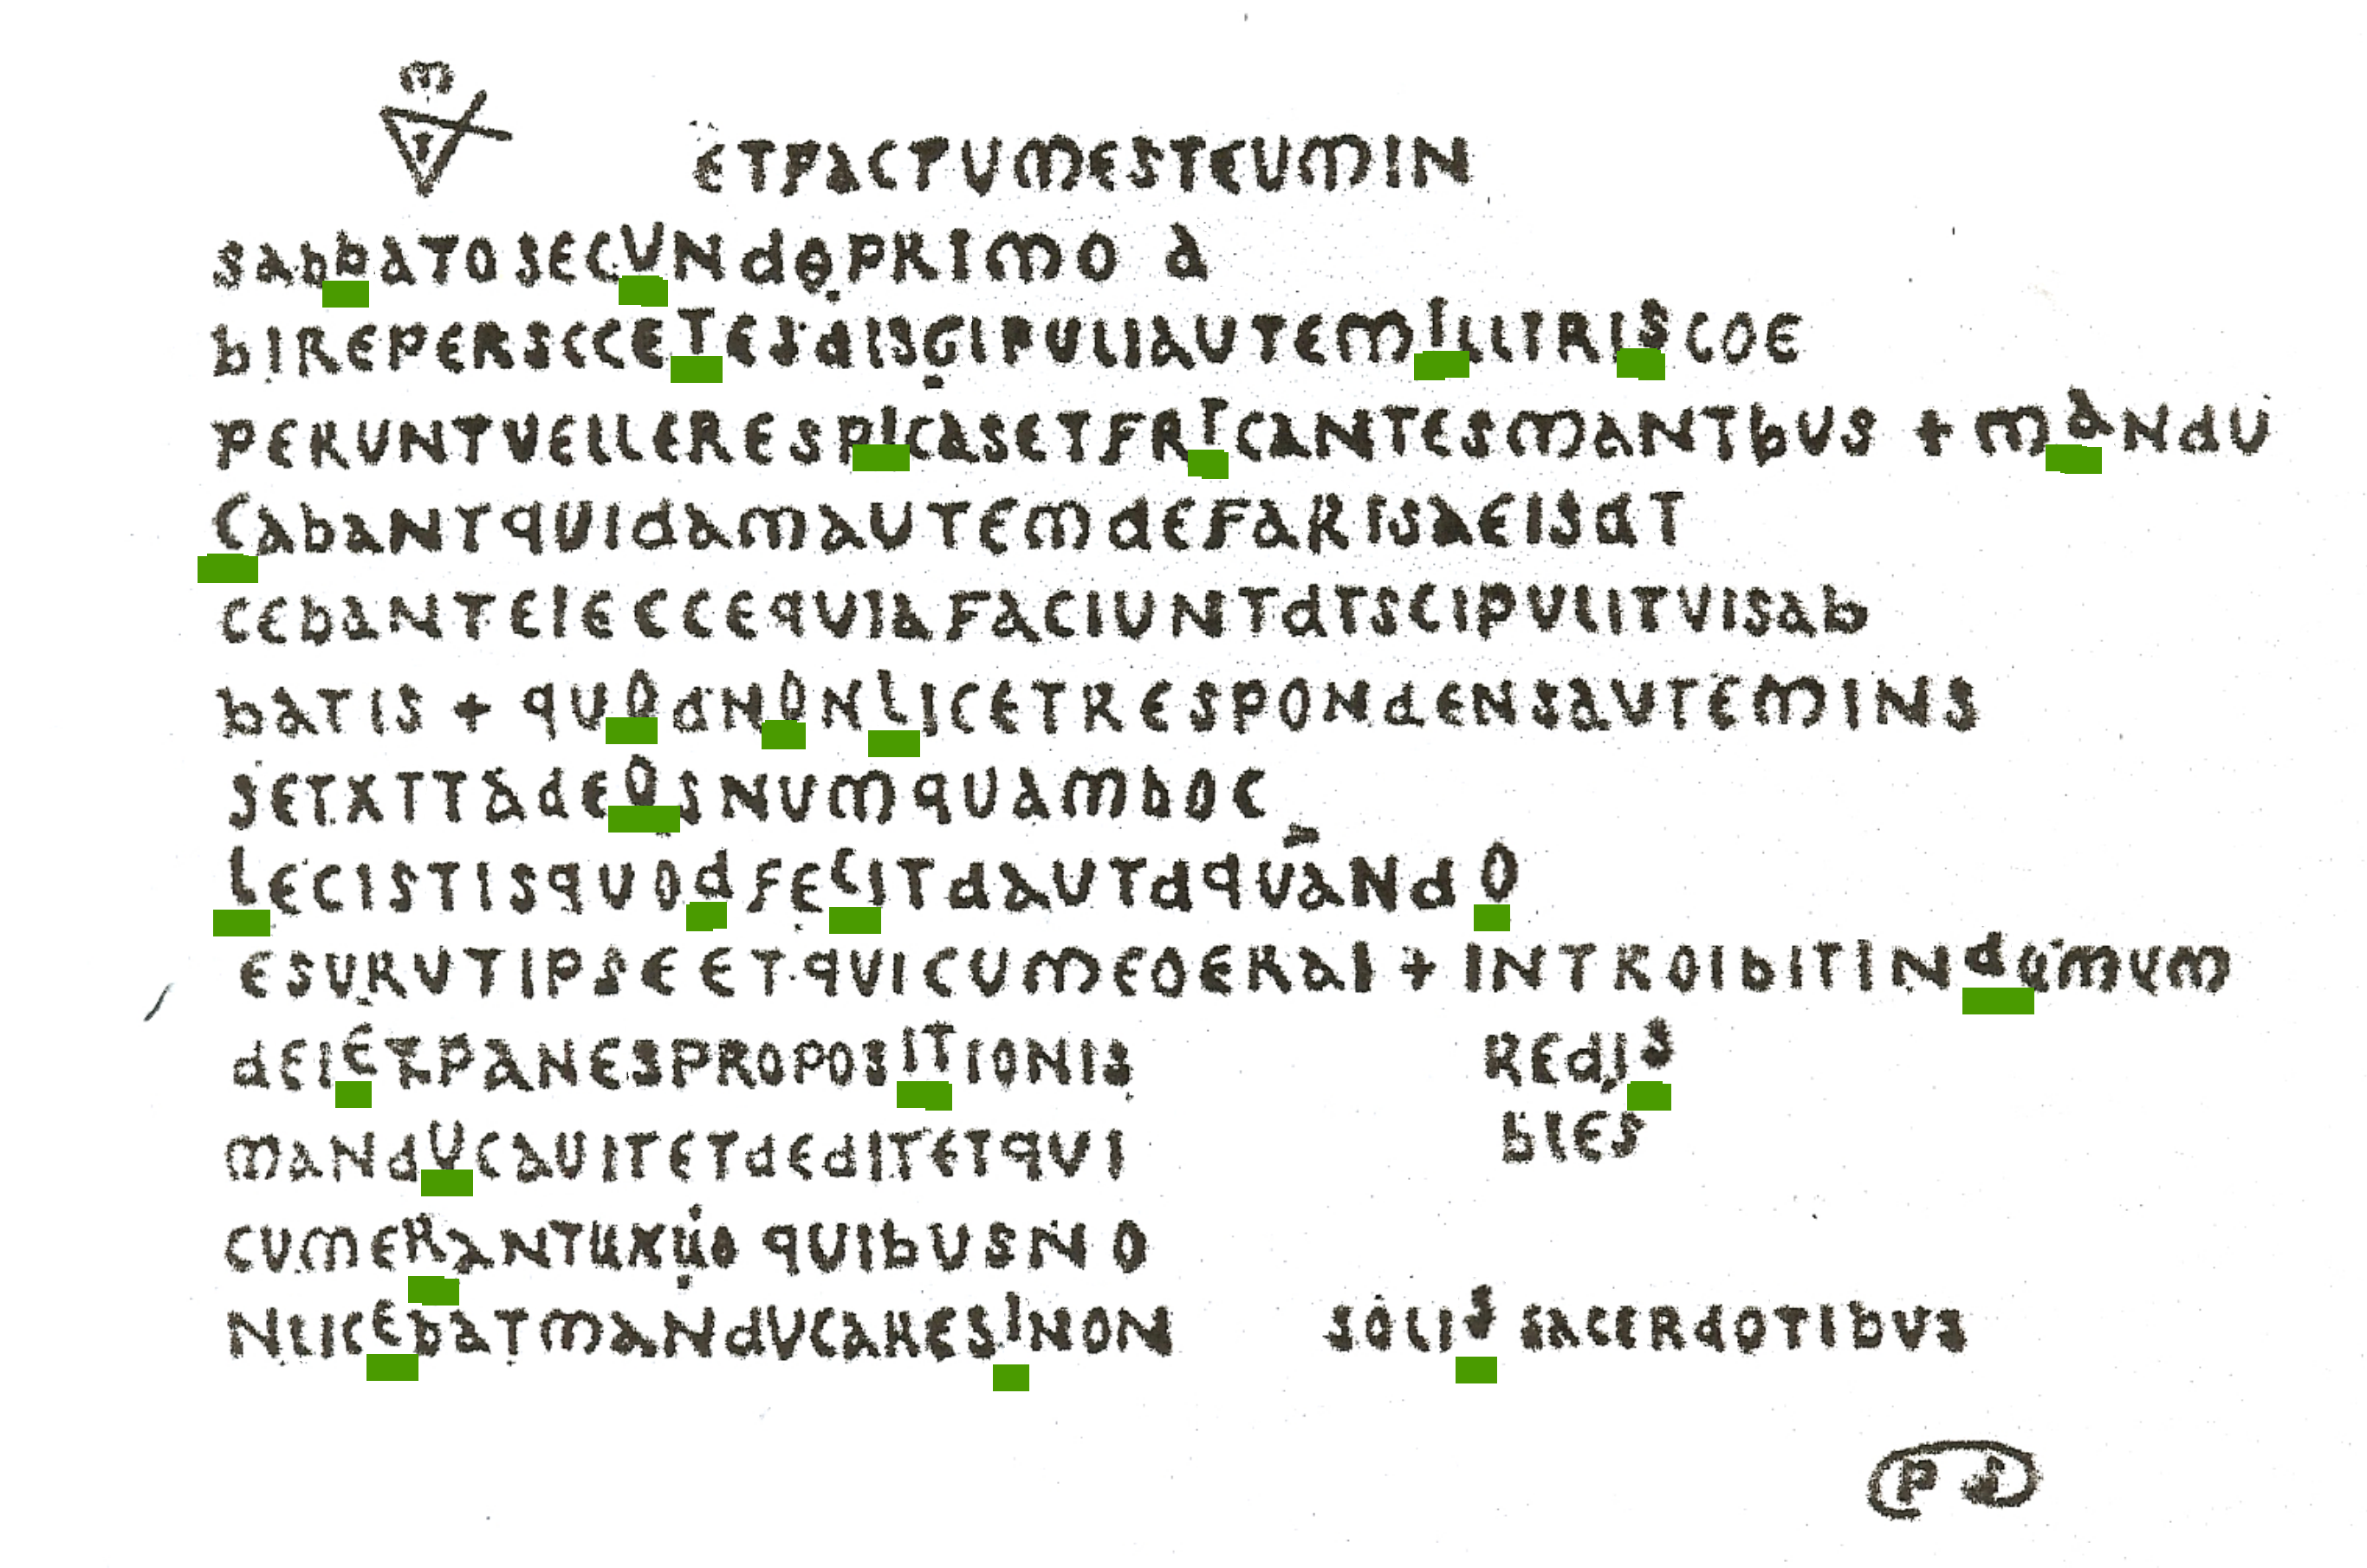 ETFACTUMESTEUMIN
SABBATOSECUNDOPRIMO A
BIREPERSCCETESDISGIPULIAUTEMILLITRISCOE
PERUNTVELLERESPICASETFRICANTESMANTBUS + MANDU
CABANTQUIDAMAUTEMDEFARISAEISAT
CEBANTEIECCEQUIAFACIUNTDTSCIPULITUISAB
BATIS + QUODNONLICETRESPONDENSAUTEMINS
SETXTTADEOSNUMQUAMBOC
LECISTISQUODFECITDAUTDQUANDO
ESURUTIPSEETQUICUMEOERAI + INTROIBITINDUMUM
DEIETPANESPROPOSITIONIS REDIS
MANDUCAUITETDEDITETQUI BLES
CUMERANTUXUO QUIBUSNO
NLICEBATMANDUCARESINON SOLIS SACERDOTIBUS
PS